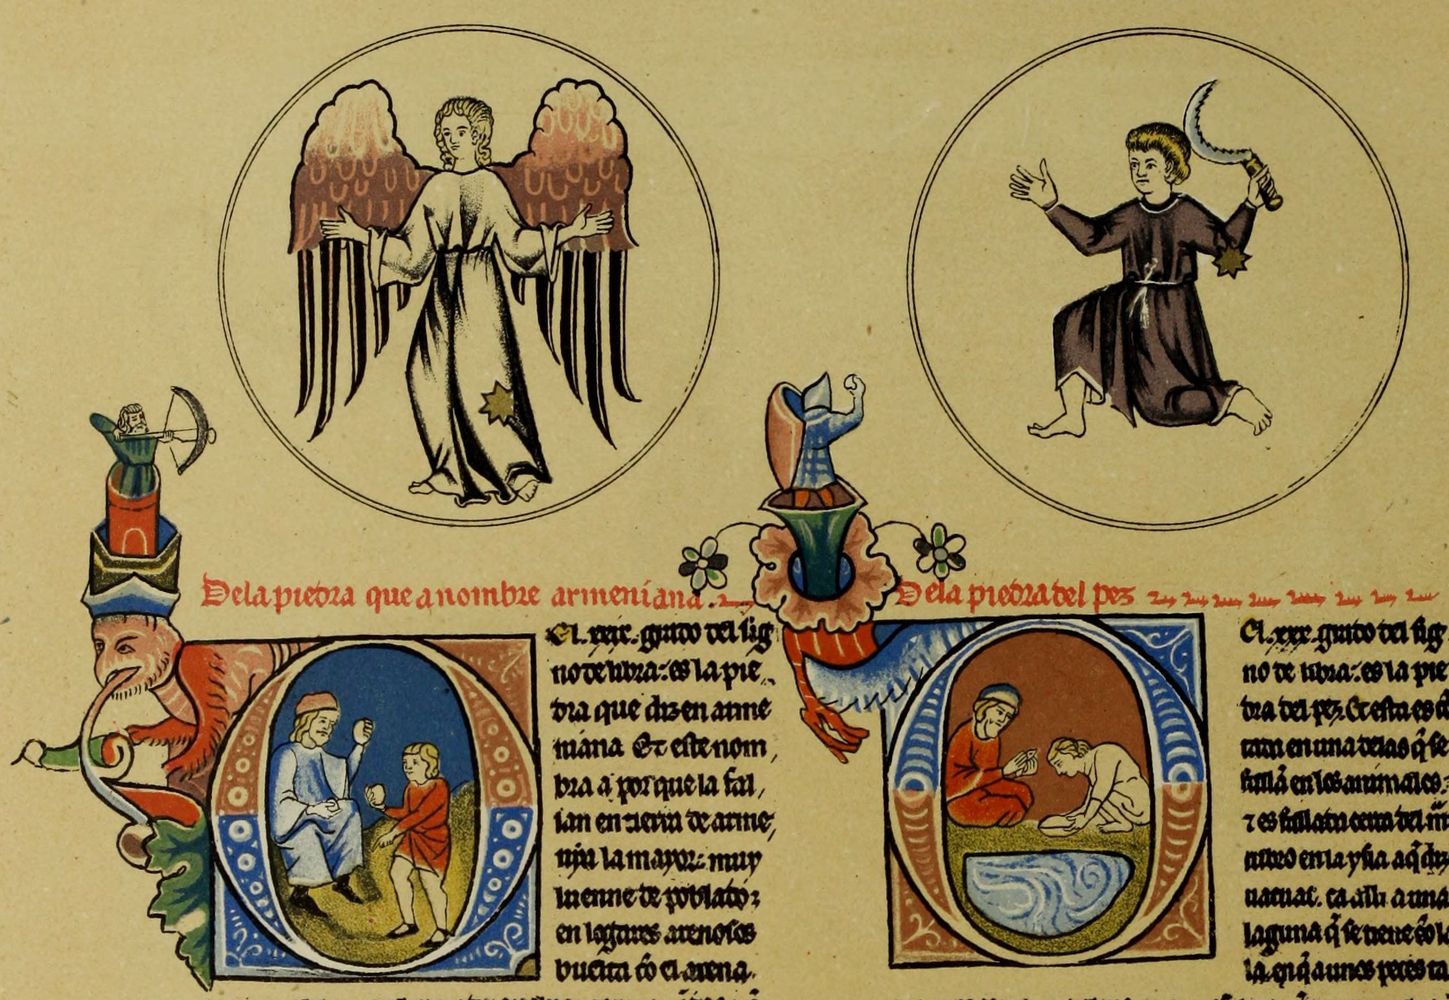 De la piedra que a nombre armeniana.
El .xxix. grado del sig
no de libra: es la pie
dra que dizen arme
niana Et este nom
bra a por que la fal
lan en tierra de arme
nya la mayor: muy
luenne de poblado:
en logares arenosos
buelta cõ el arena.
De la piedra del pez
El .xxx. grado del sig
no de libra: es la pie
dra del pez. Et esta es
en una delas q̃ se
fallã en los animales.
⁊ es fallada cerca del
en la ysla aq̃ di
ca alli a una
laguna q̃ se tiene cõ la
en q̃ a unos peces